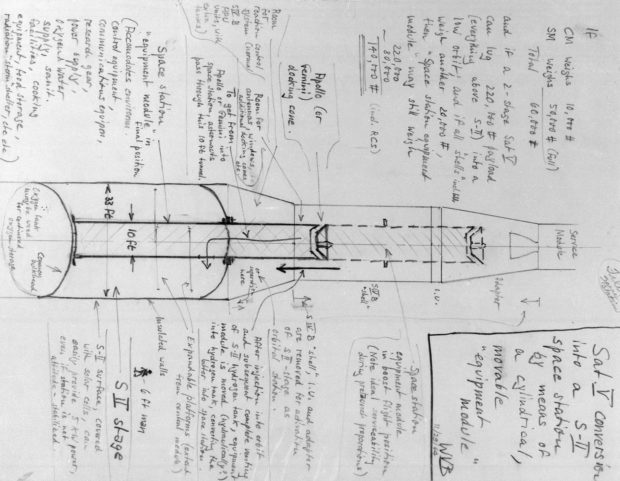 Sat V conversion
into a S-II
space station
by means of
a cylindrical,
movable
"equipment
module"
WVB
If
CM weighs 10,000 #
SM weighs 50,000 # (full)
Total 60,000 #
and if a 2-stage Sat V
can lug 220,000 # payload
(everything above S-II) into a
low orbit; and if all "shells"
weigh another 20,000 #,
then "space station equipment
module" may still weigh
220,000
- 80,000
140,000 # (incl. RCS)
Service
Module
Adapter
I.U.
SIVB
"shell"
Apollo (or
Gemini)
docking cone.
Room
for
reaction control
system
Room for
antennas, windows,
additional docking cones
etc.
To get from
Apollo or Gemini into
space station, astronauts
pass through this 10 ft tunnel.
Space station
"equipment module" in
final position
(Accomodates environmental
control equipment
communications equipm.,
research gear,
power supply,
oxygen & water
supply, sanit.
facilities, cooking
equipment, food storage,
radiation-storm shelter, etc etc)
Space station
equipment module
in boost flight position
(Note ideal serviceability
during prelaunch preparations)
SIVB "shell", I.U. and adapter
are removed for activation
of SII-stage as
orbital station.
After injection into orbit
and subsequent complete venting
of S-II hydrogen tank, equipment
module is moved
into hydrogen tank, converting the
latter into space station
Expandable platforms (extend
from central module)
Insulated walls
6 ft man
S II stage
33 ft
10 ft
Common
bulkhead
Oxygen tank
might be used
for
oxygen storage
S-II surface covered
with solar cells can
easily provide 5 KW power,
even if station is not
attitude-stabilized